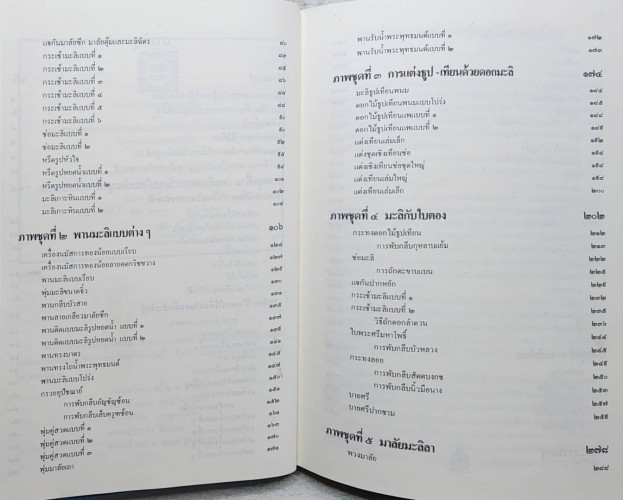 แจกันมาลัยซีก มาลัยตุ้มและมะลิฉัตร ๘๐
กระเช้ามะลิแบบที่ ๑ ๘๑
กระเช้ามะลิแบบที่ ๒ ๘๕
กระเช้ามะลิแบบที่ ๓ ๘๖
กระเช้ามะลิแบบที่ ๔
กระเช้ามะลิแบบที่ ๕
กระเช้ามะลิแบบที่ ๖
ช่อมะลิแบบที่ ๑
ช่อมะลิแบบที่ ๒
หรีดรูปหัวใจ
หรีดรูปหยดน้ำแบบที่ ๑
หรีดรูปหยดน้ำแบบที่ ๒ ๑๐๑
มะลิเกาะหินแบบที่ ๑ ๑๐๒
มะลิเกาะหินแบบที่ ๒ ๑๐๔
ภาพชุดที่ ๒ พานมะลิแบบต่าง ๆ ๑๐๖
เครื่องนมัสการทองน้อยแบบเรียบ ๑๒๔
เครื่องนมัสการทองน้อยลายดอกรักขวาง ๑๒๗
พานมะลิแบบเรียบ ๑๒๙
พุ่มมะลิขนาดจิ๋ว ๑๓๐
พานกลีบบัวสาย ๑๓๑
พานลายเกลียวมาลัยซีก ๑๓๕
พานติดแบบมะลิรูปหยดน้ำ แบบที่ ๑ ๑๓๗
พานติดแบบมะลิรูปหยดน้ำ แบบที่ ๒ ๑๓๙
พานทรงบาตร ๑๔๑
พานทรงโถน้ำพระพุทธมนต์ ๑๔๕
พานมะลิแบบโปร่ง ๑๔๗
กรวยอุปัชฌาย์ ๑๕๐
การพับกลีบอัญชัญซ้อน ๑๕๑
การพับกลีบเล็บครุฑซ้อน ๑๕๒
พุ่มคู่สวดแบบที่ ๑ ๑๖๓
พุ่มคู่สวดแบบที่ ๒ ๑๗๐
พุ่มคู่สวดแบบที่ ๓ ๑๗๑
พุ่มมาลัยเถา
พานรับน้ำพระพุทธมนต์แบบที่ ๑ ๑๗๒
พานรับน้ำพระพุทธมนต์แบบที่ ๒ ๑๗๓
ภาพชุดที่ ๓ การแต่งธูป -เทียนด้วยดอกมะลิ ๑๗๔
มะลิธูปเทียนพนม ๑๘๔
ดอกไม้ธูปเทียนพนมแบบโปร่ง ๑๘๕
ดอกไม้ธูปเทียนแพแบบที่ ๑ ๑๘๘
ดอกไม้ธูปเทียนแพแบบที่ ๒ ๑๘๙
แต่งเทียนเล่มเล็ก ๑๙๒
แต่งชุดเชิงเทียนช่อ
แต่งเชิงเทียนช่อชุดใหญ่
แต่งเทียนเล่มใหญ่
แต่งเทียนเล่มเล็ก ๒๐๐
ภาพชุดที่ ๔ มะลิกับใบตอง ๒๐๒
กระทงดอกไม้ธูปเทียน ๒๑๒
การพับกลีบกุหลาบแย้ม ๒๑๓
ช่อมะลิ
การถักตะขาบแบน ๒๒๕
แจกันปากหยัก
กระเช้ามะลิแบบที่ ๑ ๒๓๒
กระเช้ามะลิแบบที่ ๒
วิธีถักดอกลำดวน ๒๓๖
ใบพระศรีมหาโพธิ์ ๒๔๔
การพับกลีบบัวหลวง ๒๔๕
กระทงลอย ๒๔๙
การพับกลีบสัตตบงกช ๒๕๐
การพับกลีบนิ้วมือนาง ๒๕๓
บายศรี ๒๕๗
บายศรีปากชาม ๒๕๙
ภาพชุดที่ ๕ มาลัยมะลิลา ๒๗๘
พวงมาลัย ๒๘๘